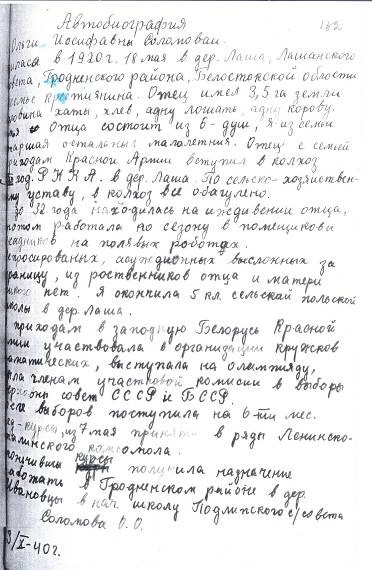 Автобиография
182
Ольги Иосифавны Соломовай.
в 1920 г. 18 мая в дер. Лаша, Лашанского
Гродненского района, Белостокской области
крестиянина. Отец имел 3,5 га земли
хаты, хлев, адну лошать, адну корову.
отца состоит из 6-душ, я из семьи
остальных малалетния. Отец с семей
приходам Красной Армии вступил в колхоз
Р.К.К.А. в дер. Лаша. По сельско-хозяйствен-
уставу, в колхоз все
12 года находилась на иждивении отца,
потом работала по сезону в помещикови
на полявых роботах.
высложных за
границу, из роственников отца и матери
нет. Я окончила 5 кл. сельской польской
в дер. Лаша.
приходам в заподную Белорусь Красной
участвовала в организации кружков
выступала на олемпияду,
членам участковой комисии в выборы
совет СССР и БССР.
выборов поступила на 6-ти мес.
курсы, из 7 мая принята в ряды Ленинско-
комсомола.
курсы получила назначение
работать в Гродненском районе в дер.
Ивановцы в нач. школу Подлипского с/совета
Соломова О. О.
3/X-40 г.